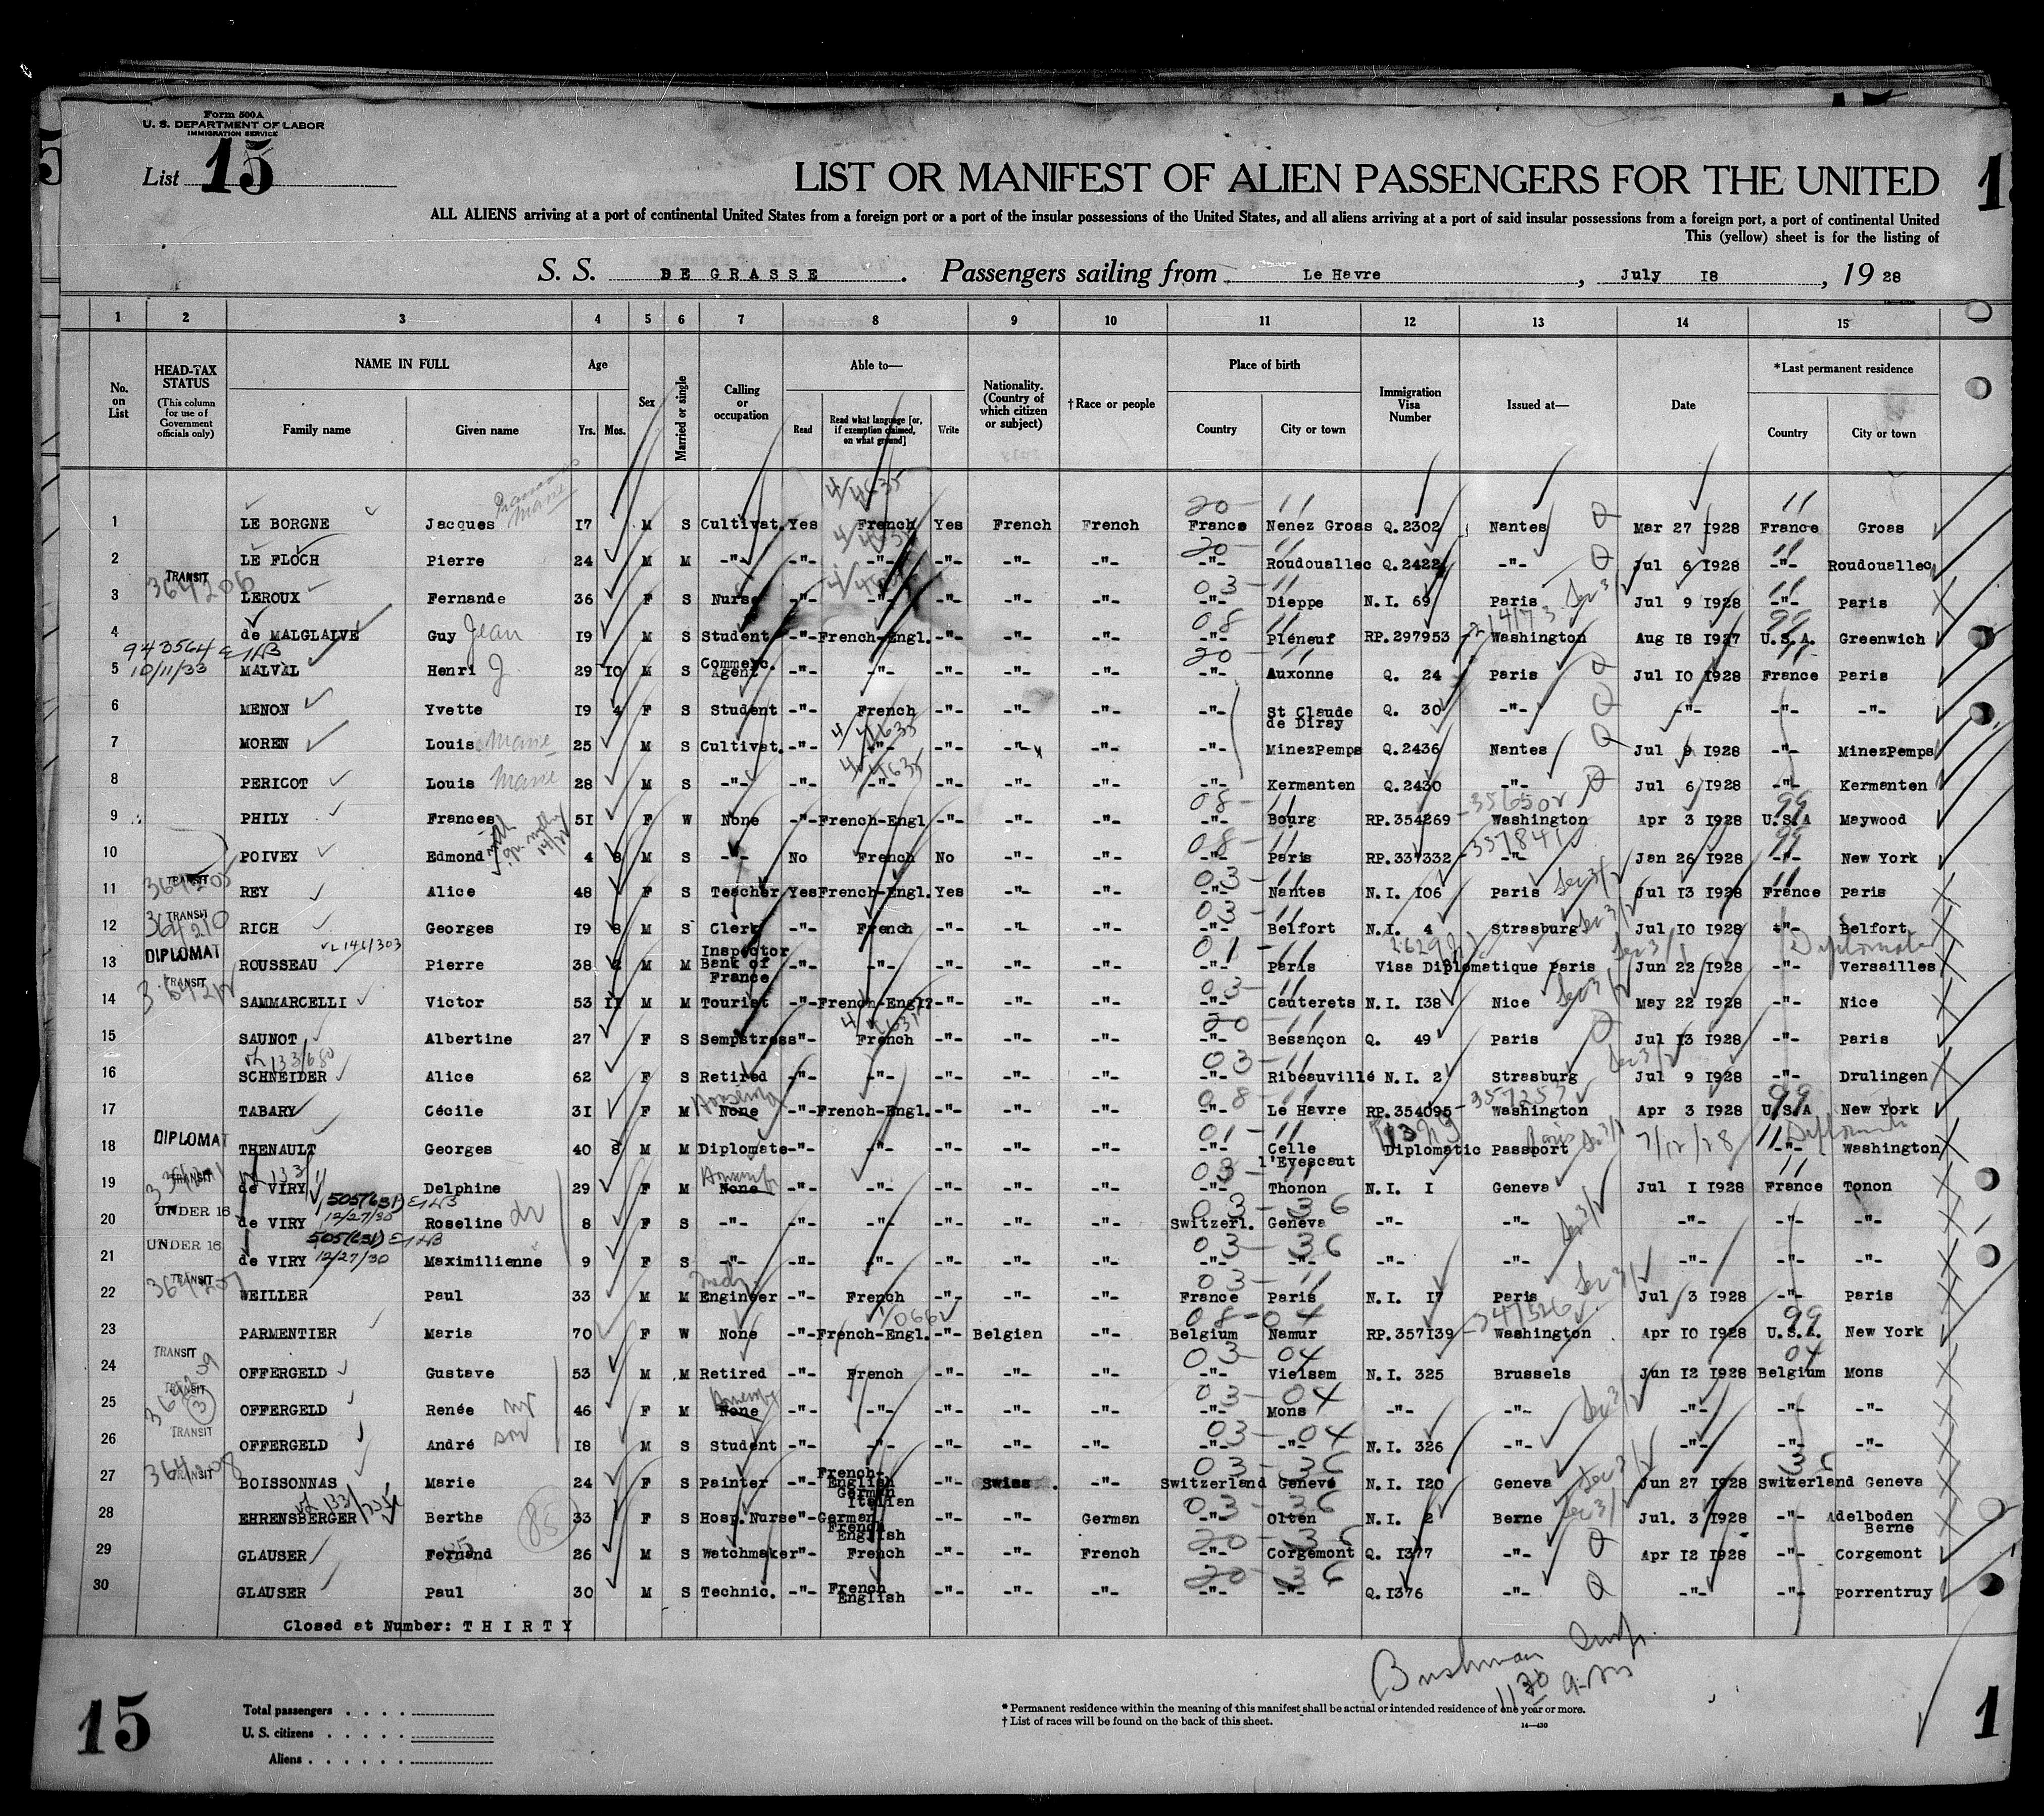 Form 500A
U. S. DEPARTMENT OF LABOR
IMMIGRATION SERVICE
List 15
LIST OR MANIFEST OF ALIEN PASSENGERS FOR THE UNITED
ALL ALIENS arriving at a port of continental United States from a foreign port or a port of the insular possessions of the United States, and all aliens arriving at a port of said insular possessions from a foreign port, a port of continental United
This (yellow) sheet is for the listing of
S. S. DE GRASSE. Passengers sailing from Le Havre, July 18, 1928
1 2 3 4 5 6 7 8 9 10 11 12 13 14 15
No. on List
HEAD-TAX STATUS (This column for use of Government officials only)
NAME IN FULL
Family name Given name
Age Yrs. Mos.
Sex
Married or single
Calling or occupation
Able to—
Read Read what language [or, if exemption claimed, on what ground] Write
Nationality. (Country of which citizen or subject)
†Race or people
Place of birth
Country City or town
Immigration Visa Number
Issued at—
Date
*Last permanent residence
Country City or town
1 LE BORGNE Jacques Marie 17 M S Cultivat. Yes French Yes French French France Nenez Gross Q.2302 Nantes Mar 27 1928 France Gross
2 LE FLOCH Pierre 24 M M -"- -"- -"- -"- -"- -"- -"- Roudouallec Q.2422 -"- Jul 6 1928 -"- Roudouallec
3 TRANSIT 364206 LEROUX Fernande 36 F S Nurse -"- -"- -"- -"- -"- -"- Dieppe N.I. 69 Paris Jul 9 1928 -"- Paris
4 de MALGLAIVE Guy Jean 19 M S Student -"- French-Engl. -"- -"- -"- -"- Pléneuf RP.297953 Washington Aug 18 1927 U.S.A. Greenwich
943564
5 10/11/33 MALVAL Henri J 29 10 M S Commerc. Agent -"- -"- -"- -"- -"- -"- Auxonne Q. 24 Paris Jul 10 1928 France Paris
6 MENON Yvette 19 4 F S Student -"- French -"- -"- -"- -"- St Claude de Diray Q. 30 -"- -"- -"- -"-
7 MOREN Louis Marie 25 M S Cultivat. -"- -"- -"- -"- -"- -"- MinezPemps Q.2436 Nantes Jul 9 1928 -"- MinezPemps
8 PERICOT Louis Marie 28 M S -"- -"- -"- -"- -"- -"- -"- Kermanten Q.2430 -"- Jul 6 1928 -"- Kermanten
9 PHILY Frances 51 F W None -"- French-Engl -"- -"- -"- -"- Bourg RP.354269 Washington Apr 3 1928 U.S.A Maywood
10 POIVEY Edmond 4 8 M S -"- No French No -"- -"- -"- Paris RP.337332 -"- Jan 26 1928 -"- New York
11 TRANSIT REY Alice 48 F S Teacher Yes French-Engl. Yes -"- -"- -"- Nantes N.I. 106 Paris Jul 13 1928 France Paris
12 TRANSIT 364210 RICH Georges 19 8 M S Clerk -"- French -"- -"- -"- -"- Belfort N.I. 4 Strasburg Jul 10 1928 -"- Belfort
13 DIPLOMAT ROUSSEAU Pierre 38 M M Inspector Bank of France -"- -"- -"- -"- -"- -"- Paris Visa Diplomatique Paris Jun 22 1928 -"- Versailles
14 TRANSIT SAMMARCELLI Victor 53 11 M M Tourist -"- French-Engl? -"- -"- -"- -"- Cauterets N.I. 138 Nice May 22 1928 -"- Nice
15 SAUNOT Albertine 27 F S Sempstress "- French -"- -"- -"- -"- Besançon Q. 49 Paris Jul 13 1928 -"- Paris
16 SCHNEIDER Alice 62 F S Retired -"- -"- -"- -"- -"- -"- Ribeauvillé N.I. 2 Strasburg Jul 9 1928 -"- Drulingen
17 TABARY Cécile 31 F M None -"- French-Engl. -"- -"- -"- -"- Le Havre RP.354095 Washington Apr 3 1928 U.S.A New York
18 DIPLOMAT THENAULT Georges 40 8 M M Diplomate -"- -"- -"- -"- -"- -"- Celle l'Evescaut Diplomatic Passport 7/12/28 -"- Washington
19 TRANSIT de VIRY Delphine 29 F M None -"- -"- -"- -"- -"- -"- Thonon N.I. 1 Geneva Jul 1 1928 France Tonon
505(631) 12/27/30
20 UNDER 16 de VIRY Roseline 8 F S -"- -"- -"- -"- -"- -"- Switzerl. Geneva -"- -"- -"- -"- -"-
505(631) 12/27/30
21 UNDER 16 de VIRY Maximilienne 9 F S -"- -"- -"- -"- -"- -"- -"- -"- -"- -"- -"- -"- -"-
22 TRANSIT WEILLER Paul 33 M M Engineer -"- French -"- -"- -"- France Paris N.I. 17 Paris Jul 3 1928 -"- Paris
23 PARMENTIER Maria 70 F W None -"- French-Engl. -"- Belgian -"- Belgium Namur RP.357139 Washington Apr 10 1928 U.S.A. New York
24 TRANSIT OFFERGELD Gustave 53 M M Retired -"- French -"- -"- -"- -"- Vielsam N.I. 325 Brussels Jun 12 1928 Belgium Mons
25 TRANSIT OFFERGELD Renée 46 F M None -"- -"- -"- -"- -"- -"- Mons -"- -"- -"- -"- -"-
26 TRANSIT OFFERGELD André son 18 M S Student -"- -"- -"- -"- -"- -"- -"- N.I. 326 -"- -"- -"- -"-
27 TRANSIT 364208 BOISSONNAS Marie 24 F S Painter -"- French-English German Italian -"- Swiss -"- Switzerland Genevé N.I. 120 Geneva Jun 27 1928 Switzerland Geneva
28 EHRENSBERGER Bertha 33 F S Hosp. Nurse "- German French English -"- -"- German -"- Olten N.I. 2 Berne Jul. 3 1928 -"- Adelboden Berne
29 GLAUSER Fernand 26 M S Watchmaker "- French -"- -"- French -"- Corgemont Q. 1377 -"- Apr 12 1928 -"- Corgemont
30 GLAUSER Paul 30 M S Technic. -"- French English -"- -"- -"- -"- -"- Q.1376 -"- -"- -"- Porrentruy
Closed at Number: T H I R T Y
Bushman Insp.
11 30 a.m
15
Total passengers
U. S. citizens
Aliens
* Permanent residence within the meaning of this manifest shall be actual or intended residence of one year or more.
† List of races will be found on the back of this sheet.
14—430
1